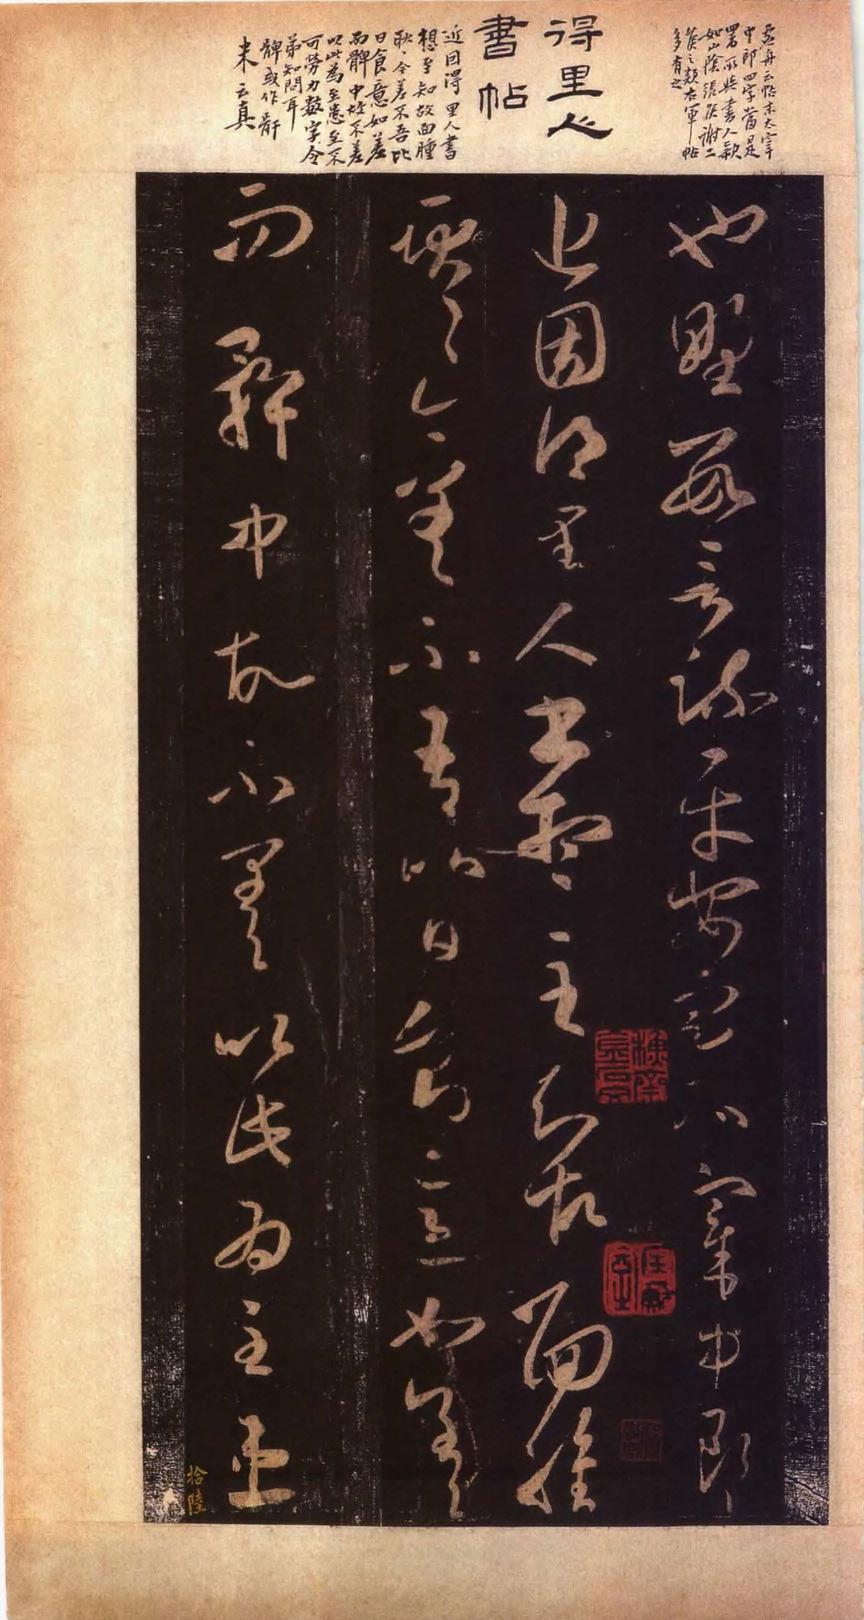 君舟云帖末太宰
中郎四字當是
署所與書人款
如山陰張侯謝二
侯之類右軍帖
多有之
得里人
書帖
近因得里人書
想至知故面腫
耿耿今差不吾比
日食意如差
而髀中故不差
以此為至患至不
可勞力數字令
弟知問耳
髀或作骭
米云真
也野數言疏平安定太宰中郎
近因得里人書想至知故面腫
耿耿今差不吾比日食意如差
而髀中故不差以此為至患
拾陸